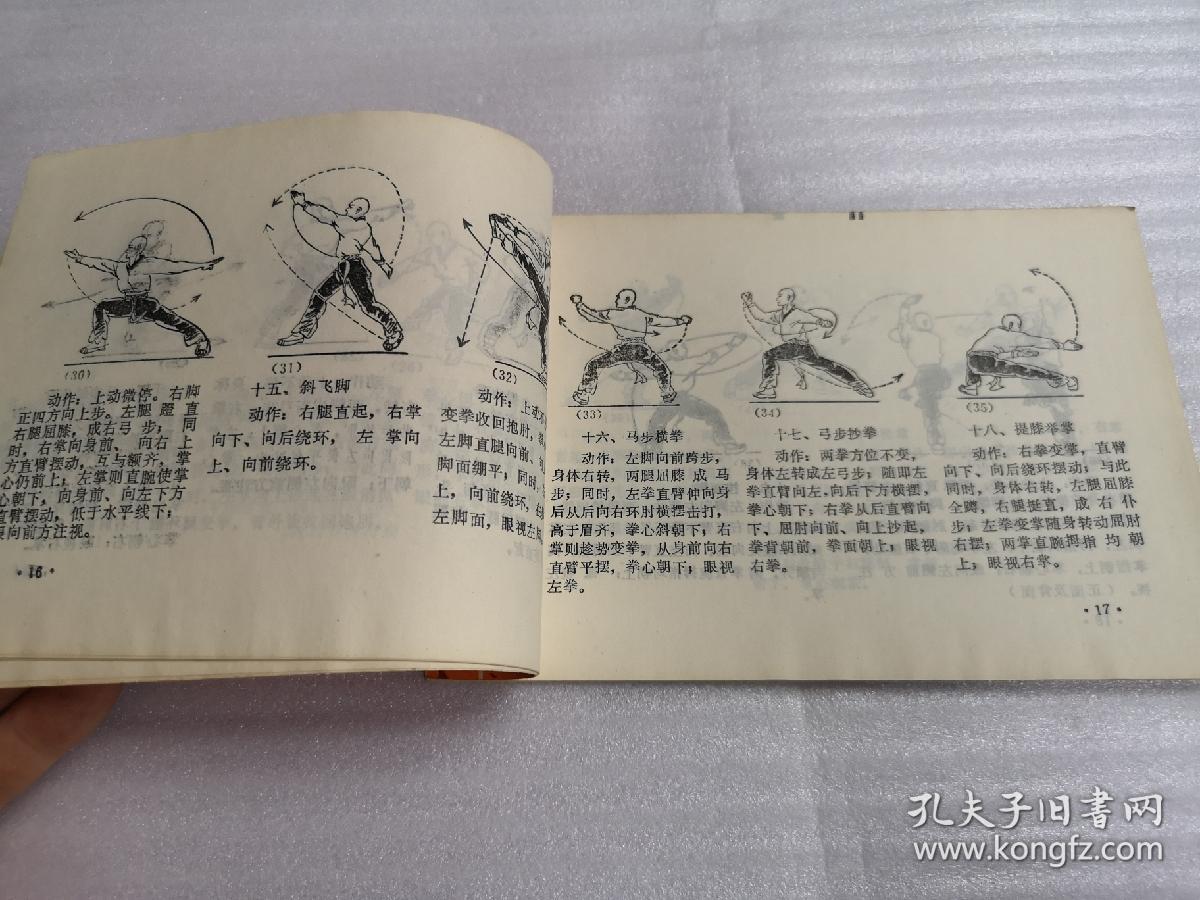 (30)
动作：上动微停。右脚
正四方向上步。左腿蹬直
右腿屈膝，成右弓步；同
时，右掌向身前、向右上
方直臂摆动，互与额齐，掌
心仍前上；左掌则直腕使掌
心朝下，向身前、向左下方
直臂摆动，低于水平线下；
向前方注视。
·16·
(31)
十五、斜飞脚
动作：右腿直起，右掌
向下、向后绕环，左掌向
上、向前绕环。
(32)
动作：上动不
变拳收回抱肘，
左脚直腿向前、
脚面绷平；同时，
上，向前绕环，
左脚面，眼视左
(33)
十六、马步横拳
动作：左脚向前跨步，
身体右转，两腿屈膝成马
步；同时，左拳直臂伸向身
后从后向右环肘横摆击打，
高于眉齐，拳心斜朝下；右
掌则趁势变拳，从身前向右
直臂平摆，拳心朝下；眼视
左拳。
(34)
十七、弓步抄拳
动作：两拳方位不变，
身体左转成左弓步；随即左
拳直臂向左、向后下方横摆，
拳心朝下；右拳从后直臂向
下、屈肘向前、向上抄起，
拳背朝前，拳面朝上；眼视
右拳。
(35)
十八、提膝举掌
动作：右拳变掌，直臂
向下、向后绕环摆动；与此
同时，身体右转，左腿屈膝
全蹲，右腿挺直，成右仆
步；左拳变掌随身转动屈肘
右摆；两掌直腕拇指均朝
上；眼视右掌。
·17·
孔夫子旧书网
www.kongfz.com